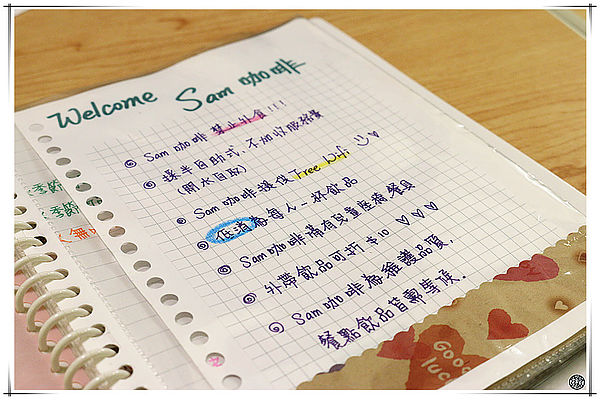 Welcome Sam 咖啡
◎ Sam 咖啡 禁止外食!!!
◎ 採半自助式, 不加收服務費
(開水自取)
◎ Sam 咖啡提供 Free Wifi
◎ 低消為每人一杯飲品
◎ Sam 咖啡備有兒童座椅餐具
◎ 外帶飲品可折 $10 ♡ ♡ ♡
◎ Sam 咖啡為維護品質,
餐點飲品皆需等候.
(季節
(季節
(無
Good
luc